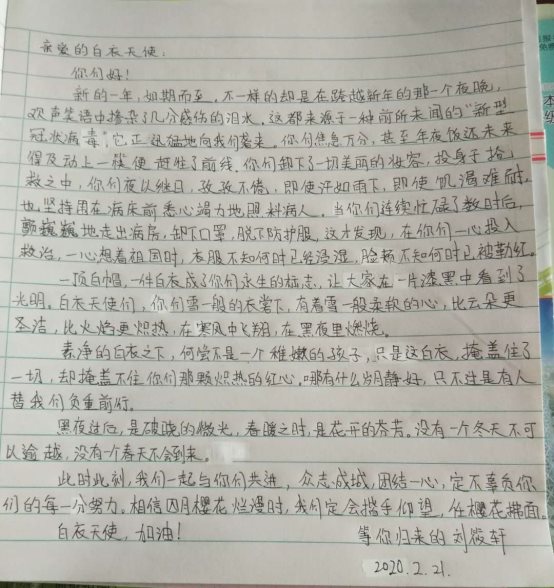 亲爱的白衣天使:
你们好!
新的一年,如期而至,不一样的却是在跨越新年的那一个夜晚,
欢声笑语中掺杂了几分感伤的泪水,这都来源于一种前所未闻的“新型
冠状病毒”,它正迅猛地向我们袭来。你们焦急万分,甚至年夜饭还未来
得及动上一筷便赶往了前线。你们卸下了一切美丽的妆容,投身于抢
救之中,你们夜以继日,孜孜不倦,即使汗如雨下,即使饥渴难耐,
也坚持围在病床前悉心竭力地照料病人。当你们连续忙碌了数时后,
颤巍巍地走出病房,卸下口罩,脱下防护服,这才发现,在你们一心投入
救治,一心想着祖国时,衣服不知何时已经浸湿,脸颊不知何时已被勒红。
一顶白帽,一件白衣成了你们永生的标志,让大家在一片漆黑中看到了
光明。白衣天使们,你们雪一般的衣裳下,有着雪一般柔软的心,比云朵更
圣洁,比火焰更炽热,在寒风中飞翔,在黑夜里燃烧。
素净的白衣之下,何尝不是一个稚嫩的孩子,只是这白衣,掩盖住了
一切,却掩盖不住你们那颗炽热的红心。哪有什么岁月静好,只不过是有人
替我们负重前行。
黑夜过后,是破晓的微光,春暖之时,是花开的芬芳。没有一个冬天不可
以逾越,没有一个春天不会到来。
此时此刻,我们一起与你们共进,众志成城,团结一心,定不辜负你
们的每一分努力。相信四月樱花烂漫时,我们定会携手仰望,任樱花拂面。
白衣天使,加油!
等你归来的刘筱轩
2020.2.21.